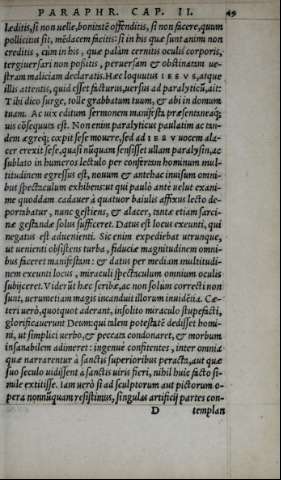 PARAPHR. CAP. II. 49
leditis, si non uelle, bonitatē offenditis, si non facere, quum
pollicitus sit, mēdacem facitis: si in his quæ sunt animi non
creditis, cùm in his, quæ palàm cernitis oculis corporis,
tergiuersari non possitis, peruersam & obstinatam ue-
stram maliciam declaratis. Hæc loquutus IESVS, atque
illis attentis, quid esset facturus, uersus ad paralyticū, ait:
Tibi dico surge, tolle grabbatum tuum, & abi in domum
tuam. Ac uix editum sermonem manifesta præsentneaq́;
uis cōsequuta est. Non enim paralyticus paulatim ac tan-
dem ægreq́; cœpit sese mouere, sed ad IESV uocem ala-
cer erexit sese, quasi nūquam sensisset ullam paralysin, ac
sublato in humeros lectulo per confertam hominum mul-
titudinem egressus est, nouum & antehac inuisum omni-
bus spectaculum exhibens: ut qui paulò antè uelut exani-
me quoddam cadauer à quatuor baiulis affixus lecto de-
portabatur, nunc gestiens, & alacer, tantæ etiam sarci-
næ gestandæ solus sufficeret. Datus est locus exeunti, qui
negatus est aduenienti. Sic enim expediebat utrunque,
ut uenienti obsistens turba, fiduciæ magnitudinem omni-
bus faceret manifestam: & datus per mediam multitudi-
nem exeunti locus, miraculi spectaculum omnium oculis
subijceret. Viderūt hæc scribæ, ac non solum correcti non
sunt, uerumetiam magis incanduit illorum inuidētia. Cæ-
teri uerò, quotquot aderant, insolito miraculo stupefacti,
glorificauerunt Deum: qui talem potestatē dedisset homi-
ni, ut simplici uerbo, & peccata condonaret, & morbum
insanabilem adimeret: ingenuè confitentes, inter omnia
quæ narrarentur à sanctis superioribus peracta, aut quæ
suo seculo uidissent à sanctis uiris fieri, nihil huic facto si-
mile extitisse. Iam uerò si ad sculptorum aut pictorum o-
pera nonnūquam resistimus, singulas artificij partes con-
D templan